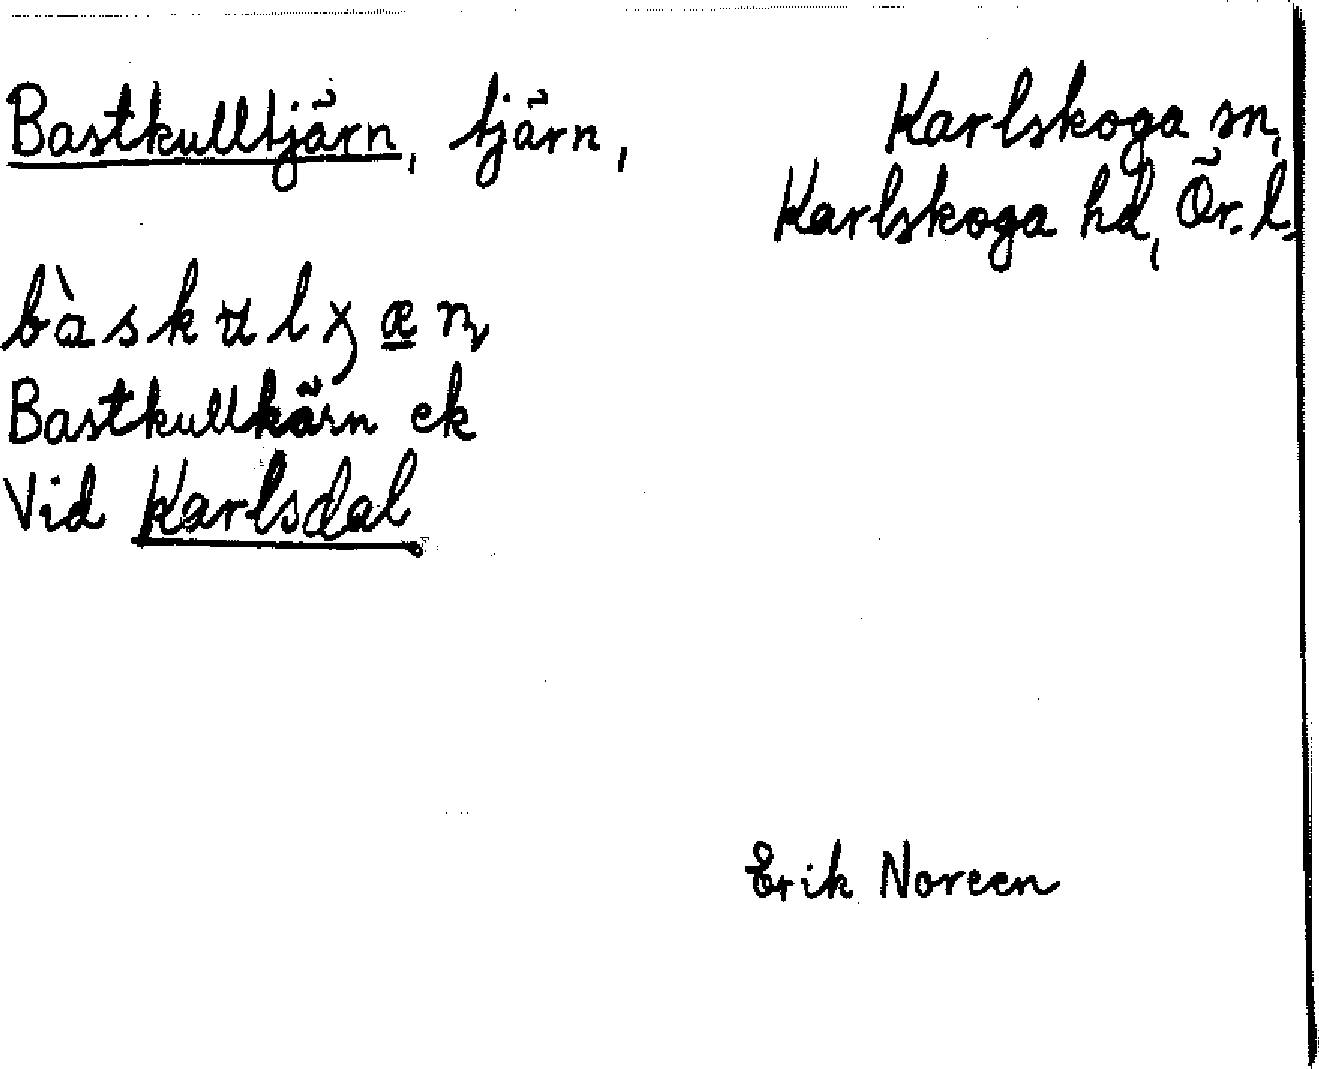 Bastkulltjärn, tjärn, Karlskoga sn,
Karlskoga hd, Ör. l.
Bastkullkärn ek
Vid Karlsdal
Erik Noreen